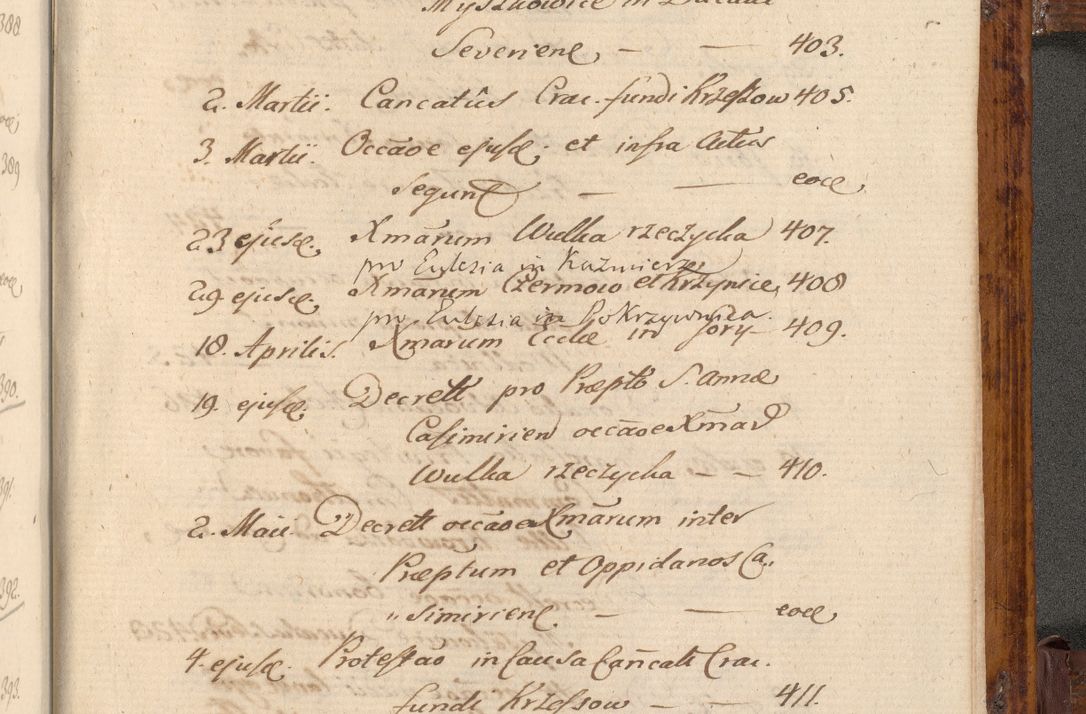 Myszkowice in Ducatu
Severien. — — 403.
2. Martii. Cancatûs Crac. fundi Krzeszow 405.
3. Martii. Occãoe ejusd. et infra Actus
segunt — — eod.
23 ejusd. Xmãrum Wulka rzeczycka 407.
pro Eclesia in Kazmierze
29 ejusd. Xmãrum Czermowo et Krzynice, 408
pro Eclesia in PoKrzywnica.
18. Aprilis. Xmarum Eccliæ in Gory — 409.
19. ejusd. Decrett pro Præpto S. Annæ
Casimirien occãoe Xmarũ
Wulka rzeczycka — — 410.
2. Maii. Decrett occãoe Xmãrum inter
Præptum et Oppidanos Ca„
„simirien. — — eod.
4. ejusd. Protestao in Causa Cañcatt Crac.
fundi Krzessow — — 411.
388.
389
390.
391.
392.
393.